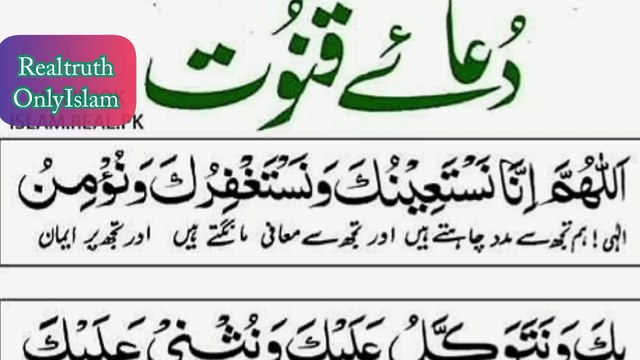 دُعائے قنُوت
Realtruth
OnlyIslam
ISLAM.REAL.PK
اَللّٰهُمَّ اِنَّا نَسْتَعِيْنُكَ وَنَسْتَغْفِرُكَ وَنُؤْمِنُ
الٰہی! ہم تجھ سے مدد چاہتے ہیں اور تجھ سے معافی مانگتے ہیں اور تجھ پر ایمان
بِكَ وَنَتَوَكَّلُ عَلَيْكَ وَنُثْنِيْ عَلَيْكَ